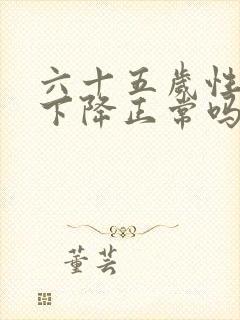 六十五歲性
下降正常吗
董芸